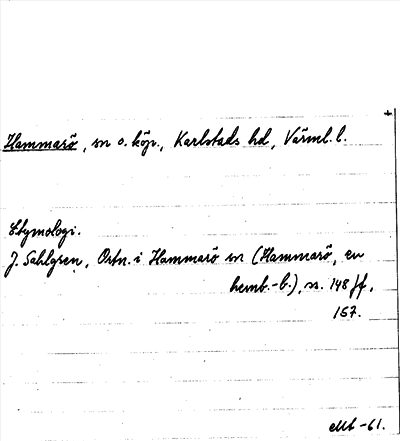 +
Hammarö, sn o. köp., Karlstads hd, Värml. l.
Etymologi.
J. Sahlgren, Ortn. i Hammarö sn (Hammarö, en
hemb.-b.), s. 148 ff.,
157.
-61.